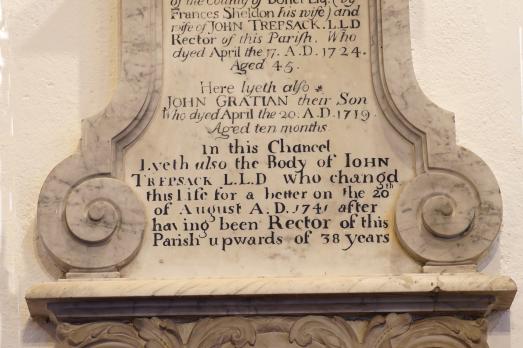 of the County of Dorset Esq. (by
Frances Sheldon his wife) and
wife of JOHN TREPSACK. L.L.D
Rector of this Parish. Who
dyed April the 17. A.D. 1724.
Aged 45.
Here lyeth also
JOHN GRATIAN their Son
Who dyed April the 20. A.D. 1719.
Aged ten months.
In this Chancel
Lyeth also the Body of IOHN
TREPSACK L.L.D who changd
this life for a better on the 20th
of August A.D. 1741 after
having been Rector of this
Parish upwards of 38 years